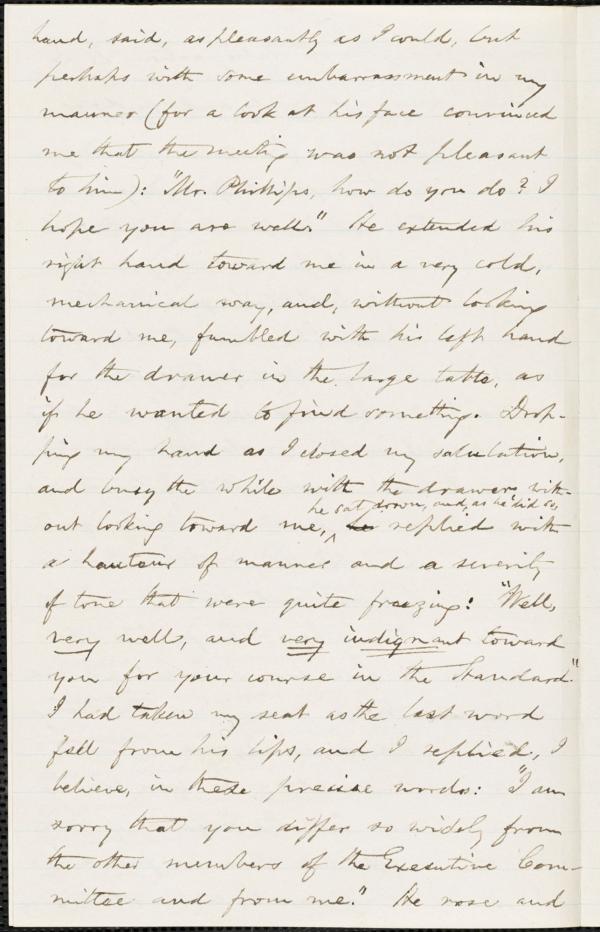 hand, said, as pleasantly as I could, but
perhaps with some embarrassment in my
manner (for a look at his face convinced
me that the meeting was not pleasant
to him): "Mr. Phillips, how do you do? I
hope you are well." He extended his
right hand toward me in a very cold,
mechanical way, and, without looking
toward me, fumbled with his left hand
for the drawer in the large table, as
if he wanted to find something. Drop-
ping my hand as I closed my salutation,
and busy the while with the drawer, with-
he sat down, and, as he did so,
out looking toward me, he replied with
a hauteur of manner and a severity
of tone that were quite freezing: "Well,
very well, and very indignant toward
you for your course in the Standard."
I had taken my seat as the last word
fell from his lips, and I replied, I
believe, in these precise words: "I am
sorry that you differ so widely from
the other members of the Executive Com-
mittee and from me." He rose and